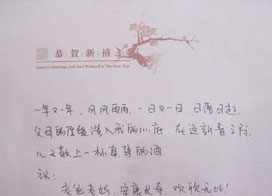 恭贺新禧
Season's Greetings And Best Wishes For The New Year
一年又一年，风风雨雨，一日又一日，日落日起，
父母的厚爱深入我的心底，在这新春之际，
儿又敬上一杯真挚的酒
说：
老爸老妈，安康长寿，欢欢喜喜！